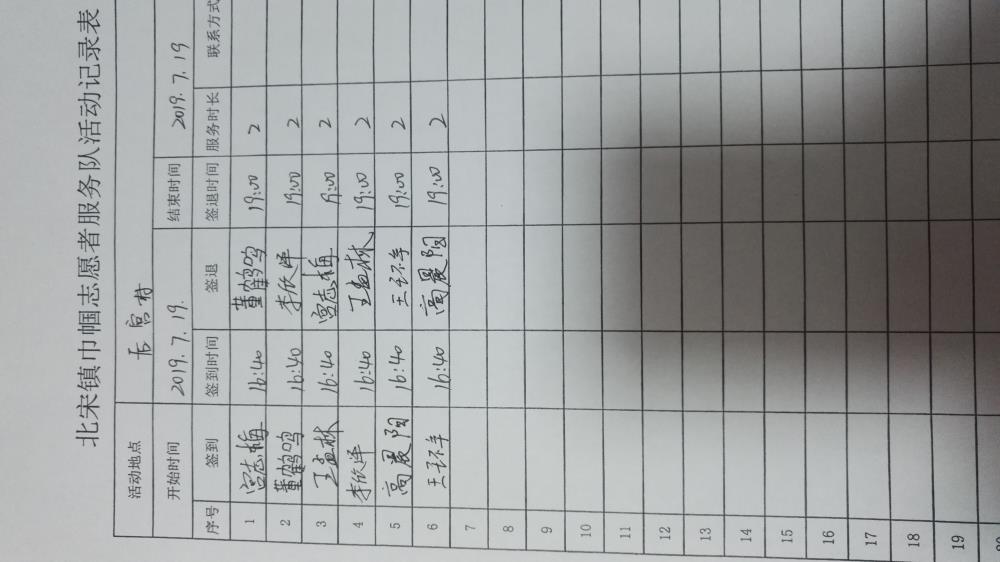 北宋镇巾帼志愿者服务队活动记录表
活动地点 后宫村
开始时间 2019.7.19. 结束时间 2019.7.19
序号 签到 签到时间 签退 签退时间 服务时长 联系方式
1 宫志梅 16:40 董鹤鸣 19:00 2
2 董鹤鸣 16:40 李欣洋 19:00 2
3 王孟林 16:40 宫志梅 9:00 2
4 李欣洋 16:40 王孟林 19:00 2
5 高晨阳 16:40 王环宇 19:00 2
6 王环宇 16:40 高晨阳 19:00 2
7
8
9
10
11
12
13
14
15
16
17
18
19
20